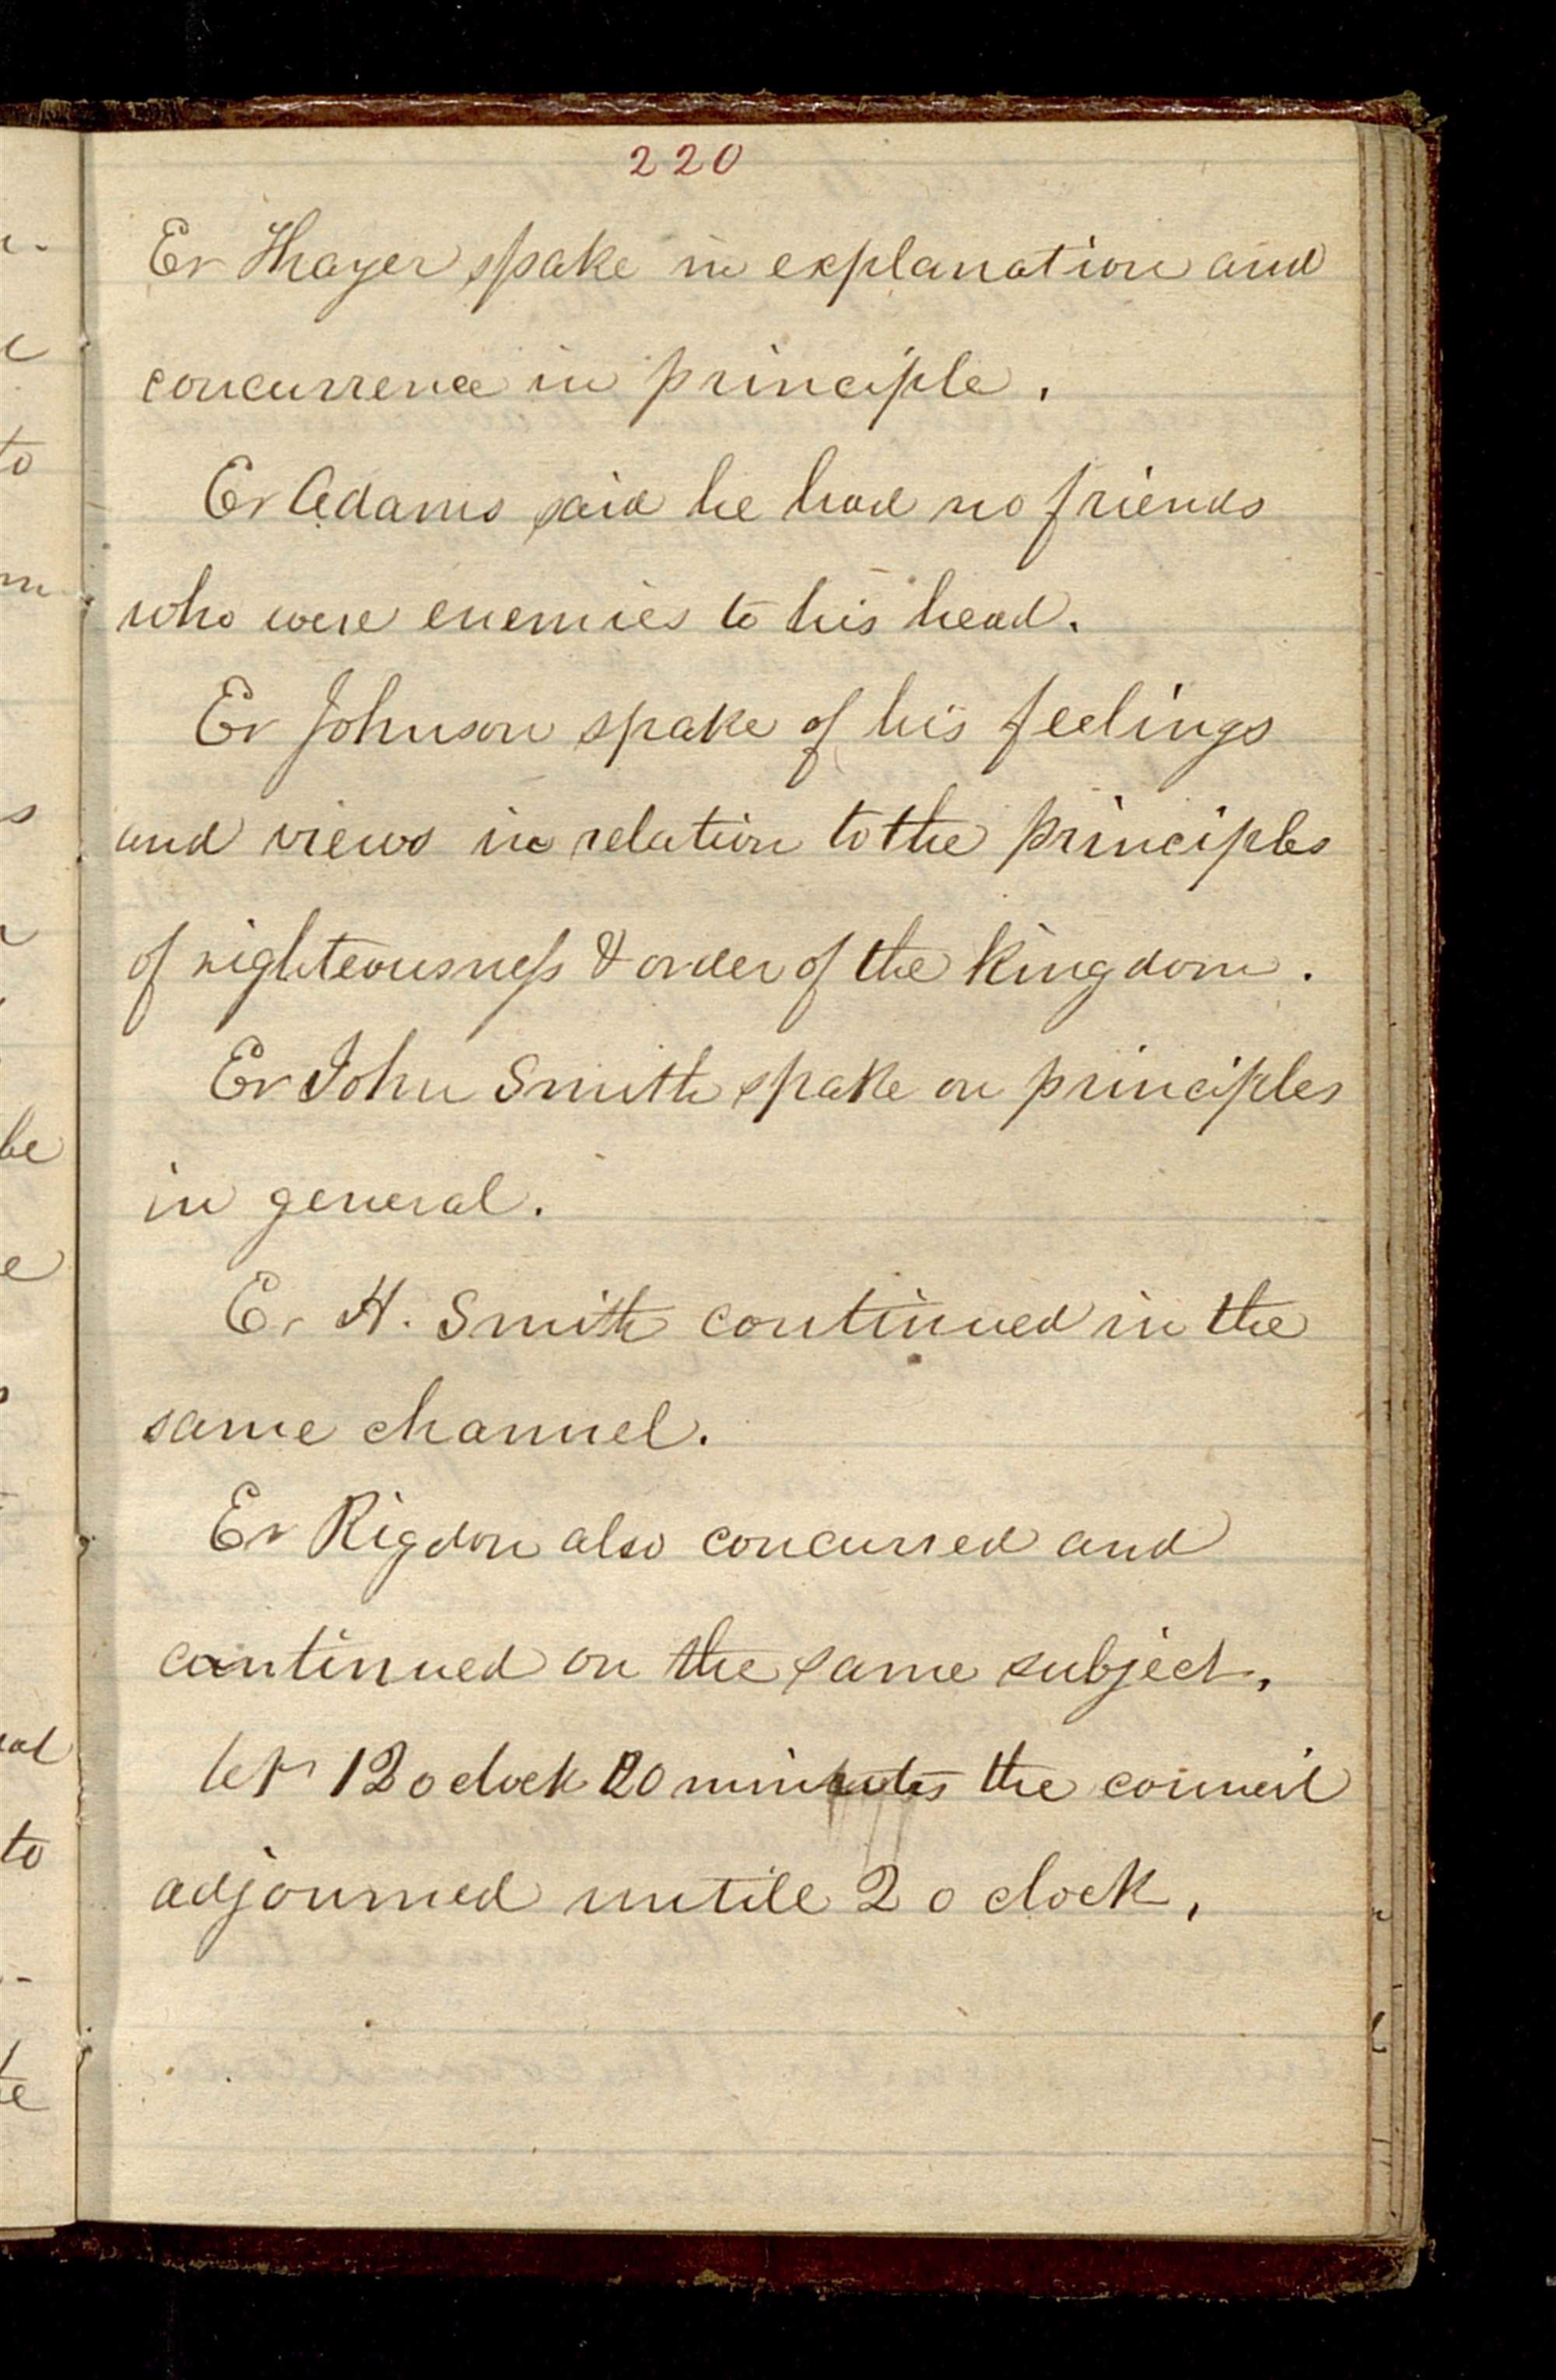 220
Er Thayer spake in explanation and
concurrence in principle.
Er Adams said he had no friends
who were enemies to his head.
Er Johnson spake of his feelings
and views in relation to the principles
of righteousness & order of the kingdom.
Er John Smith spake on principles
in general.
Er H. Smith continued in the
same channel.
Er Rigdon also concurred and
continued on the same subject.
At 12 o clock 20 minutes the council
adjourned untill 2 o clock.